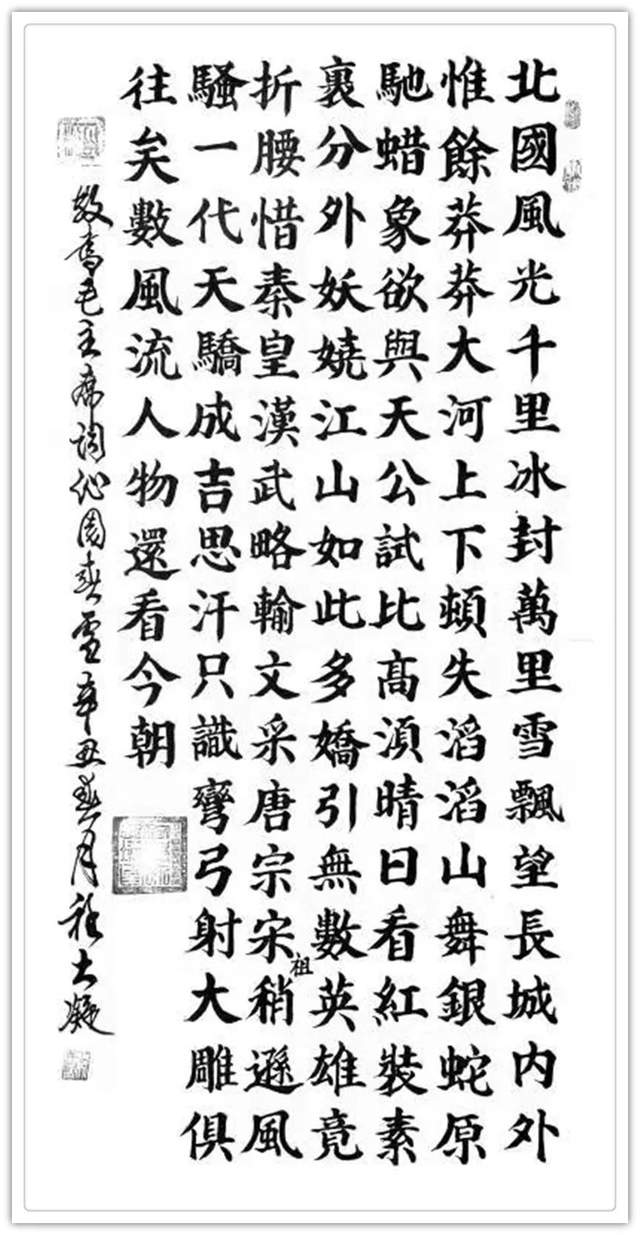 北國風光千里冰封萬里雪飄望長城内外
惟餘莽莽大河上下頓失滔滔山舞銀蛇原
馳蜡象欲與天公試比高湏晴日看紅裝素
裏分外妖嬈江山如此多嬌引無數英雄竟
折腰惜秦皇漢武略輸文采唐宗宋祖稍遜風
騷一代天驕成吉思汗只識彎弓射大雕俱
往矣數風流人物還看今朝
毛主席詞沁園春雪辛丑春月程士凝